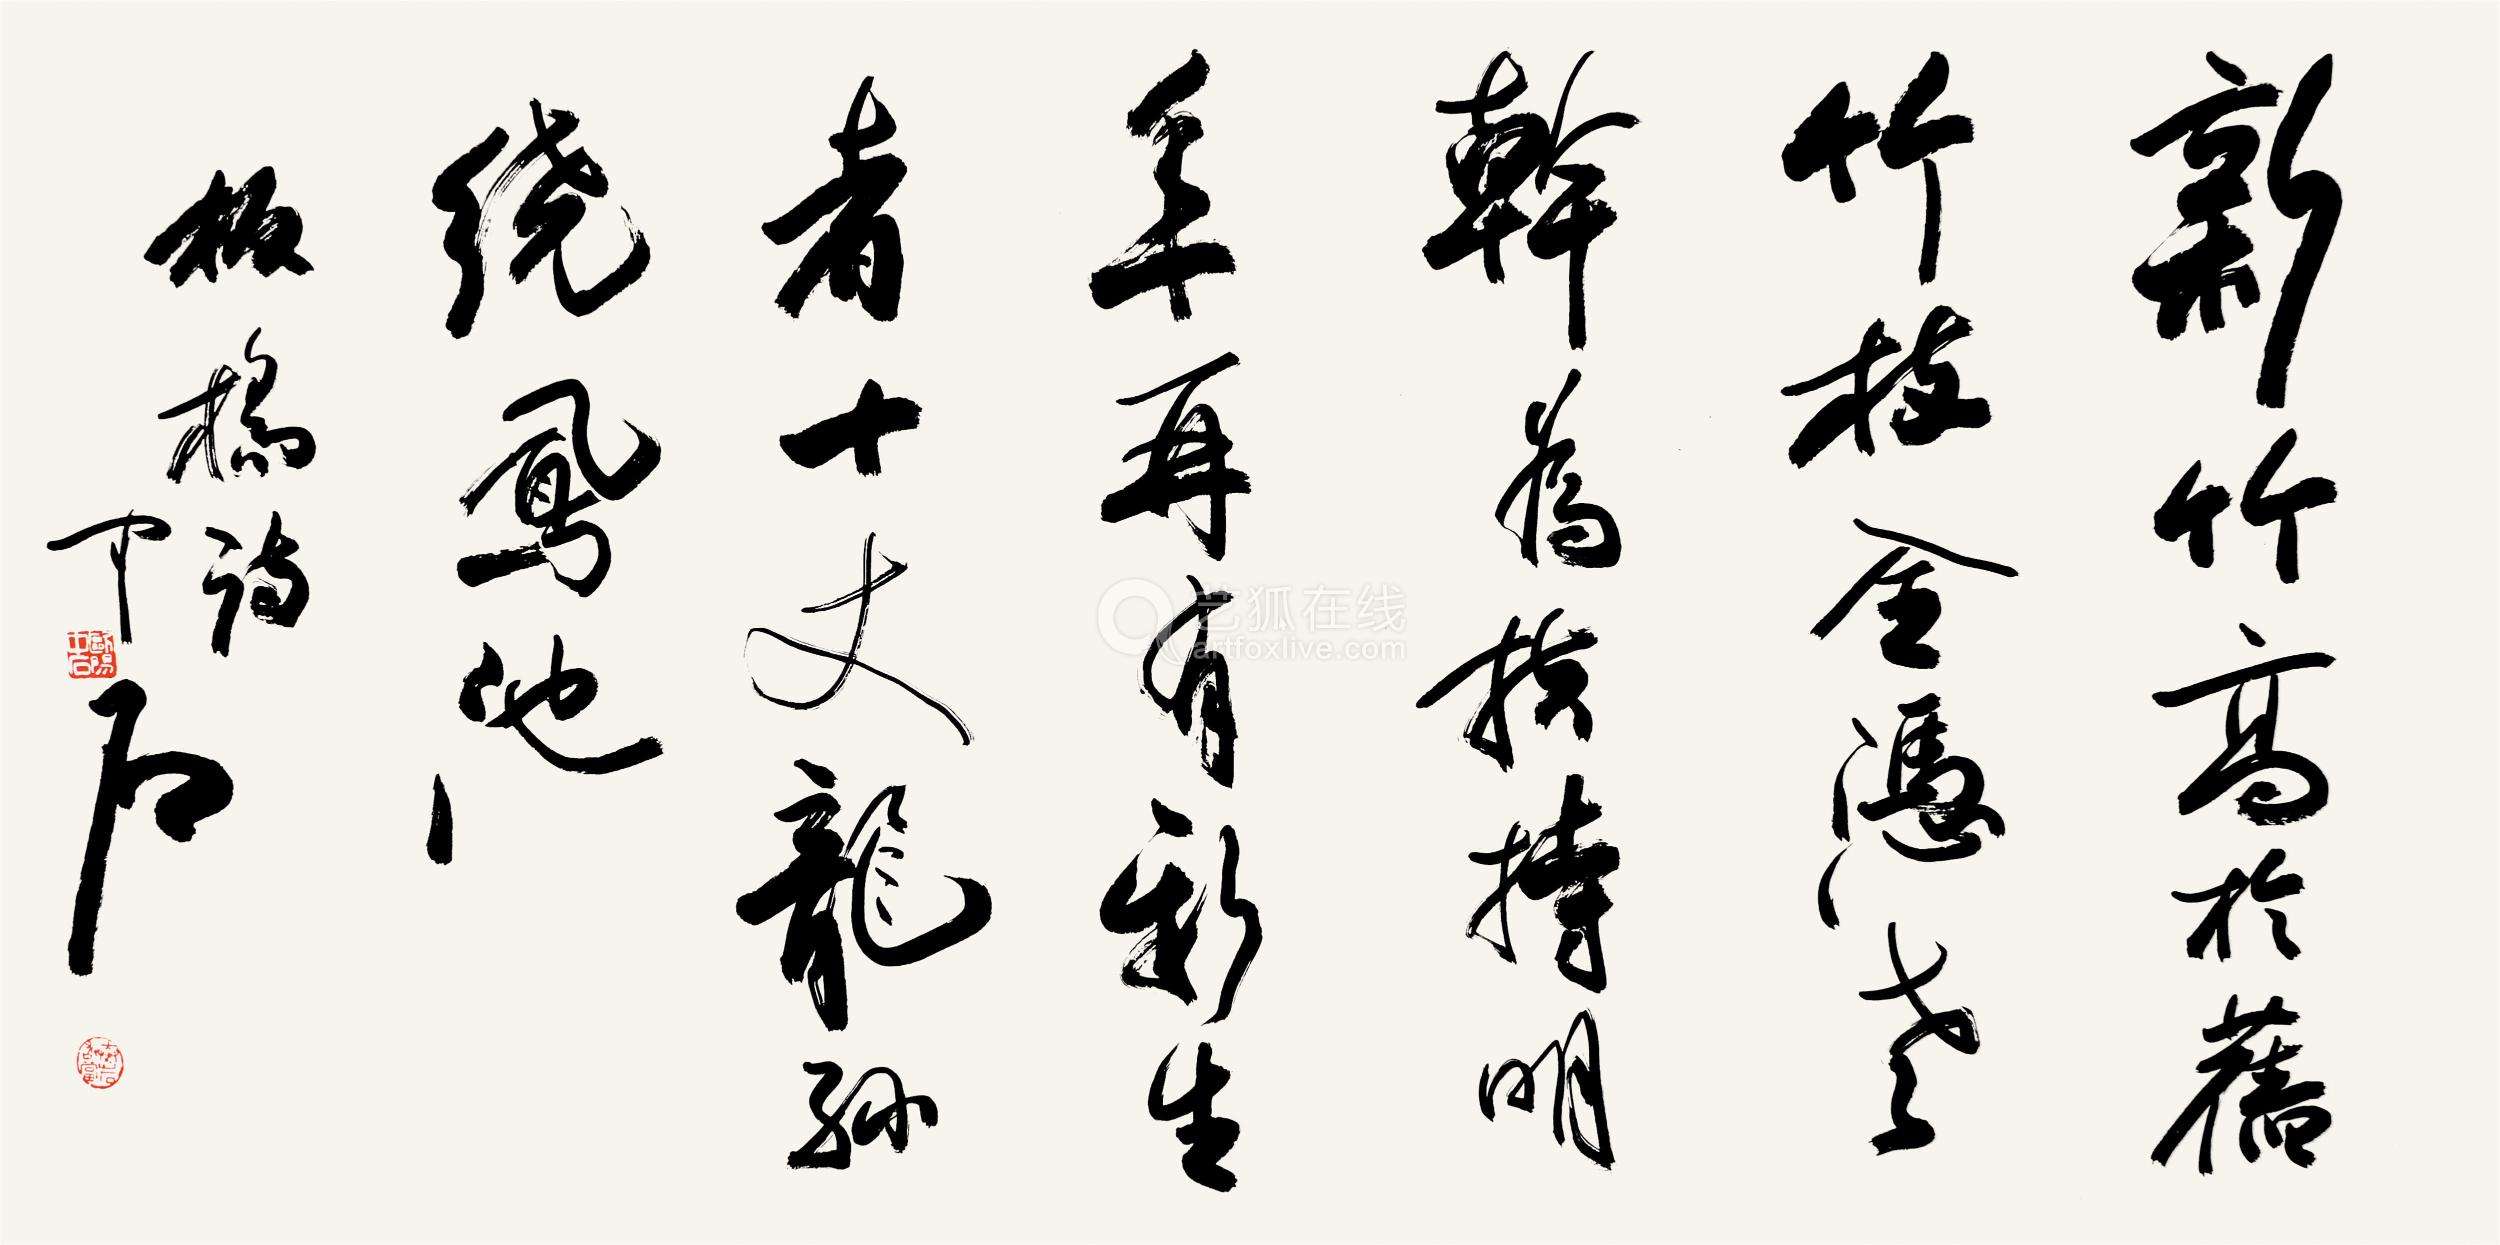 新竹高於舊
竹枝全憑老
幹為扶持明
年再有新生
者十丈龍孫
繞鳳池
板橋詩
中石
歐陽中石
艺狐在线
artfoxlive.com